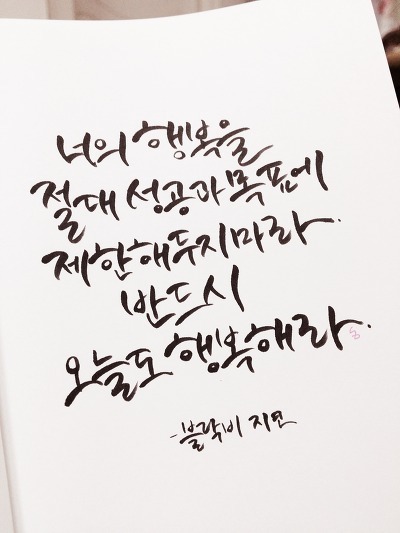 너의 행복을
절대 성공과 목표에
제한해두지마라.
반드시
오늘도 행복해라.
-블락비 지코